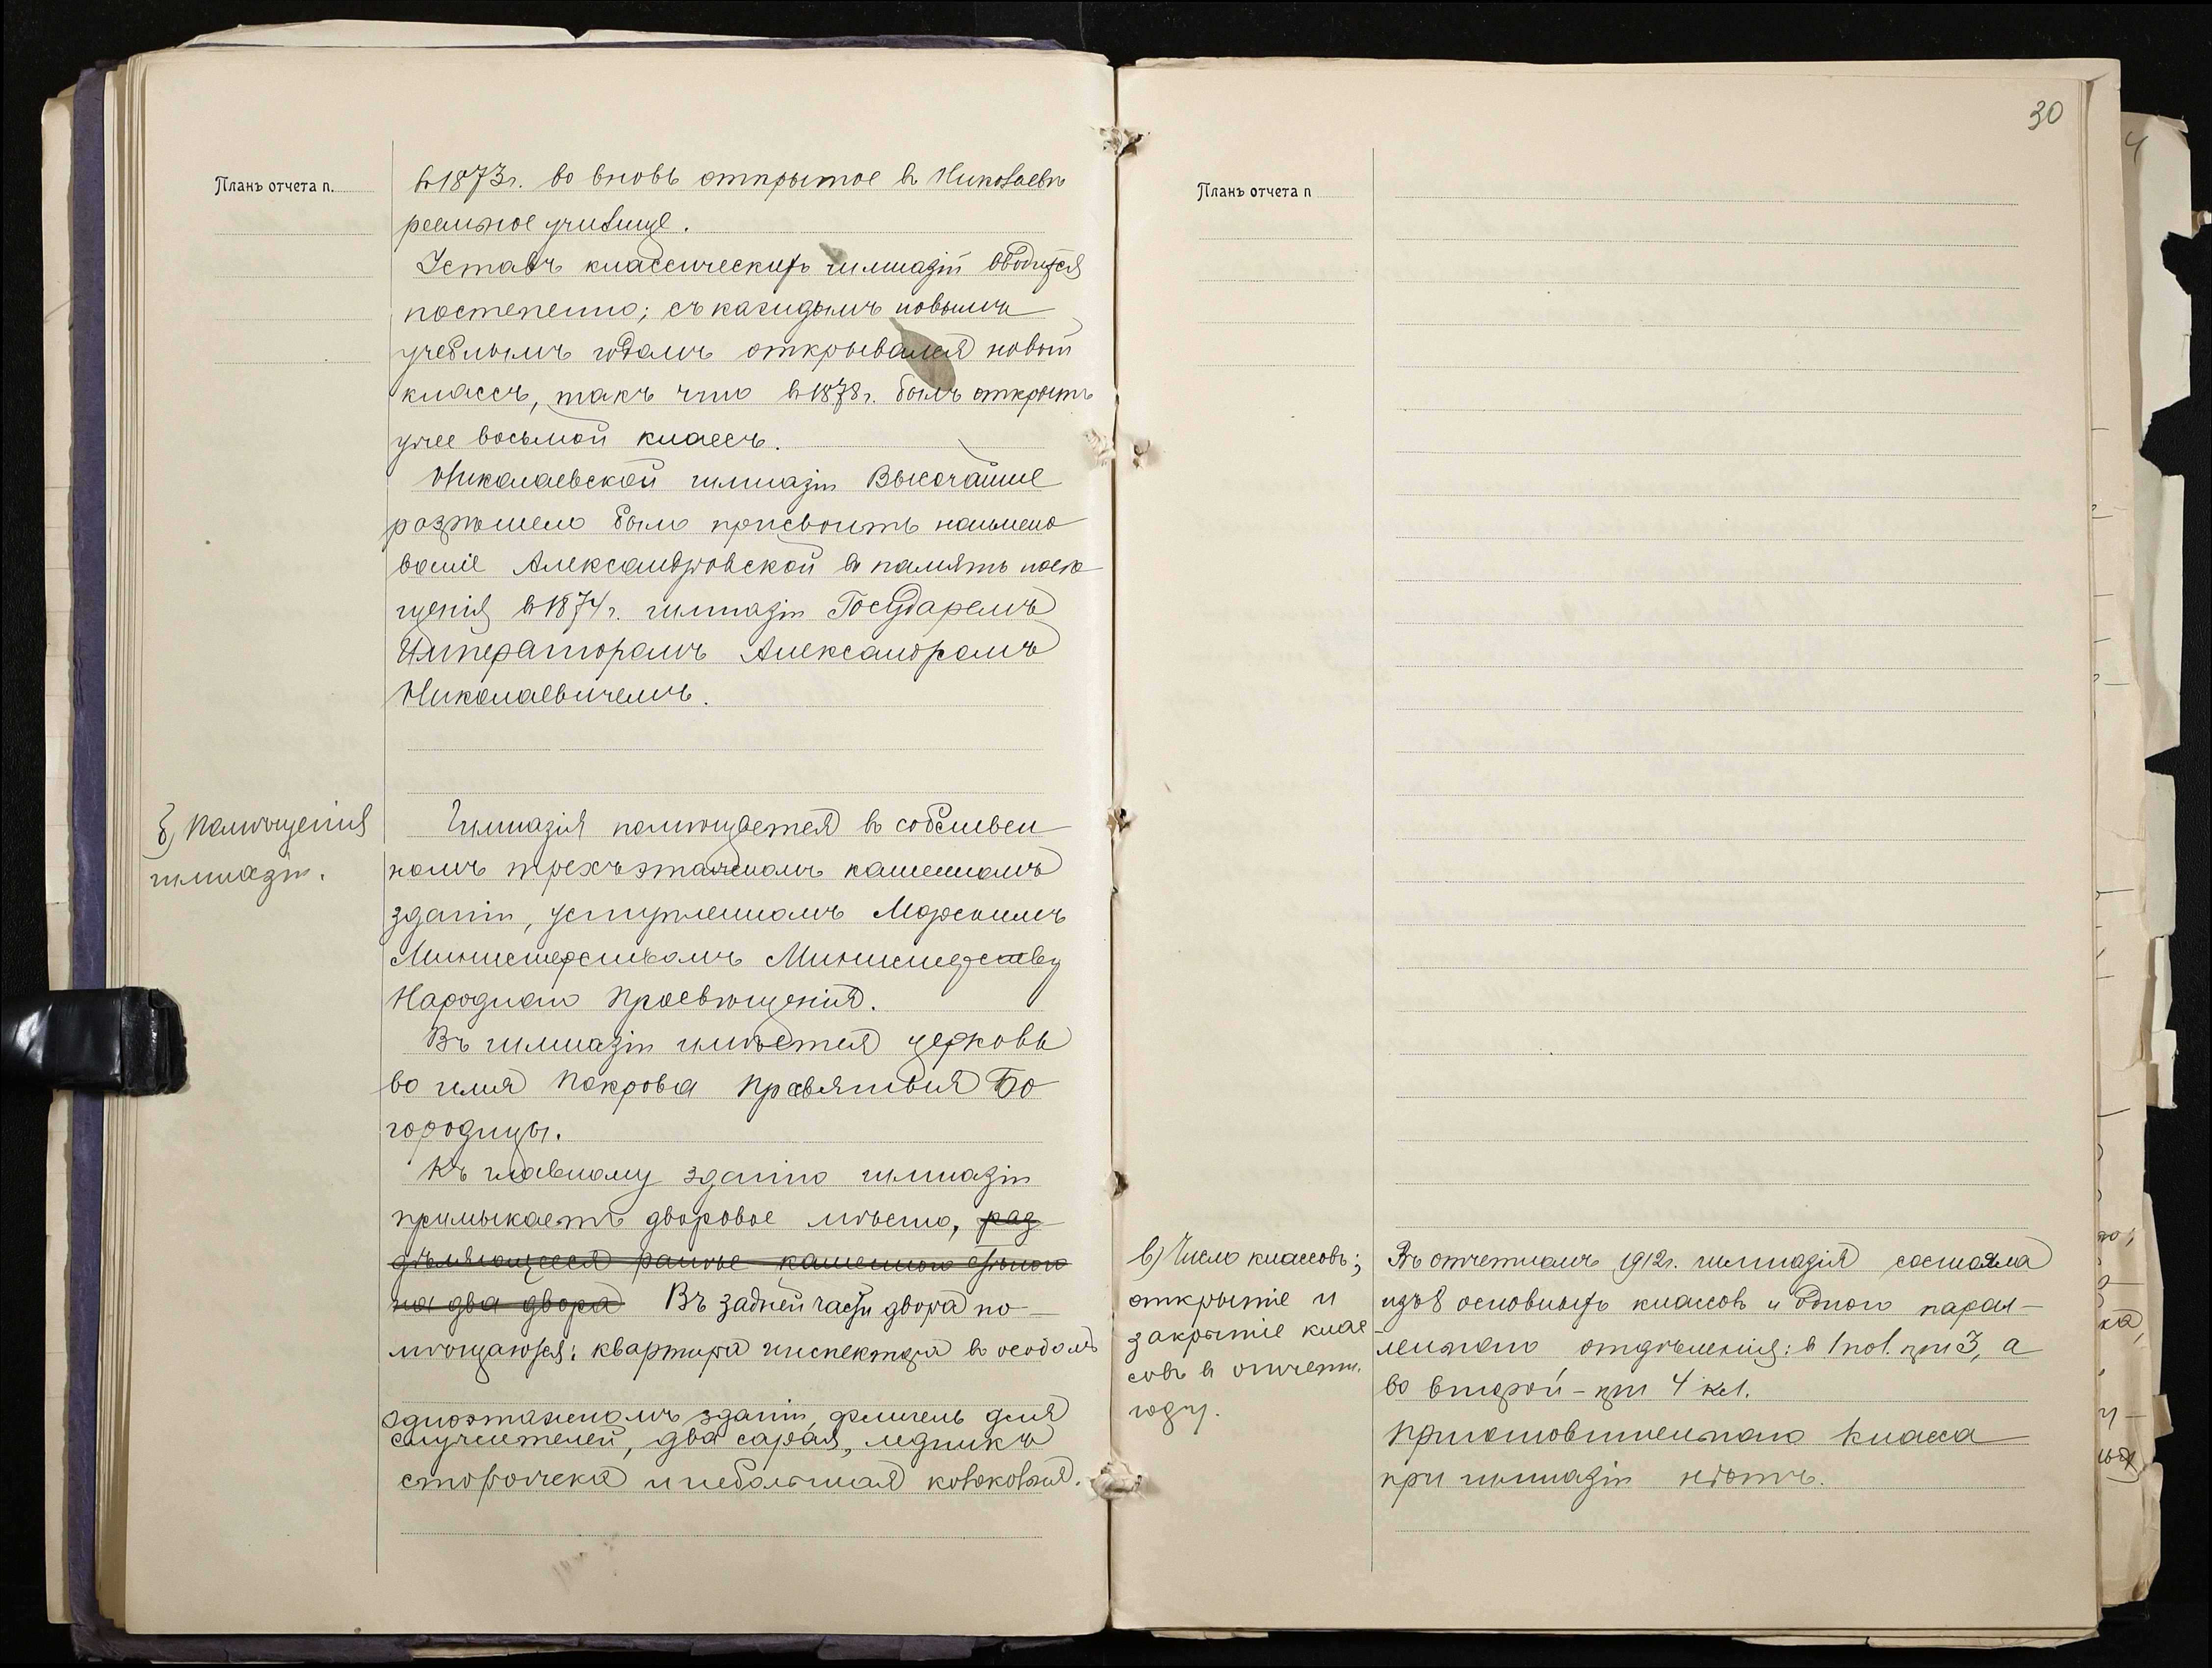 Планъ отчета п.
въ 1873г. во вновь открытое въ Николаевѣ
реальное училище.
Уставъ классическихъ гимназій вводится
постепенно; съ каждымъ новымъ
учебнымъ годомъ открывался новый
классъ, такъ что въ 1878г. былъ открытъ
уже восьмой классъ.
Николаевской гимназіи Высочайше
розрѣшено было присвоить наимено
ваніе Александровской въ память посѣ
щенія въ 1874г. гимназіи Государемъ
Императоромъ Александромъ
Николаевичемъ.
б) Помѣщенія
гимназіи.
Гимназія помѣщается въ собствен
номъ трехъэтажномъ каменномъ
зданіи, уступленномъ Морскимъ
Министерствомъ Министерству
Народнаго Просвѣщенія.
Въ гимназіи имѣется церковь
во имя Покрова Пресвятыя Бо
городицы.
Къ главному зданію гимназіи
примыкаетъ дворовое мѣсто, раз
дѣляющееся ранѣе каменною стѣною
на два двора Въ задней части двора по-
мѣщаются: квартира инспектора въ особомъ
одноэтажномъ зданіи, флигель для
служителей, два сарая, ледникъ
сторожка и небольшая
30
Планъ отчета п
в) Число классовъ;
открытіе и
закрытіе клас
совъ въ отчетн.
году.
Въ отчетномъ 1912г. гимназія состояла
изъ 8 основныхъ классовъ и одного парал-
лельнаго отдѣленія: въ 1 пол. при 3, а
во второй - при 4 кл.
Приготовительнаго класса
при гимназіи нѣтъ.